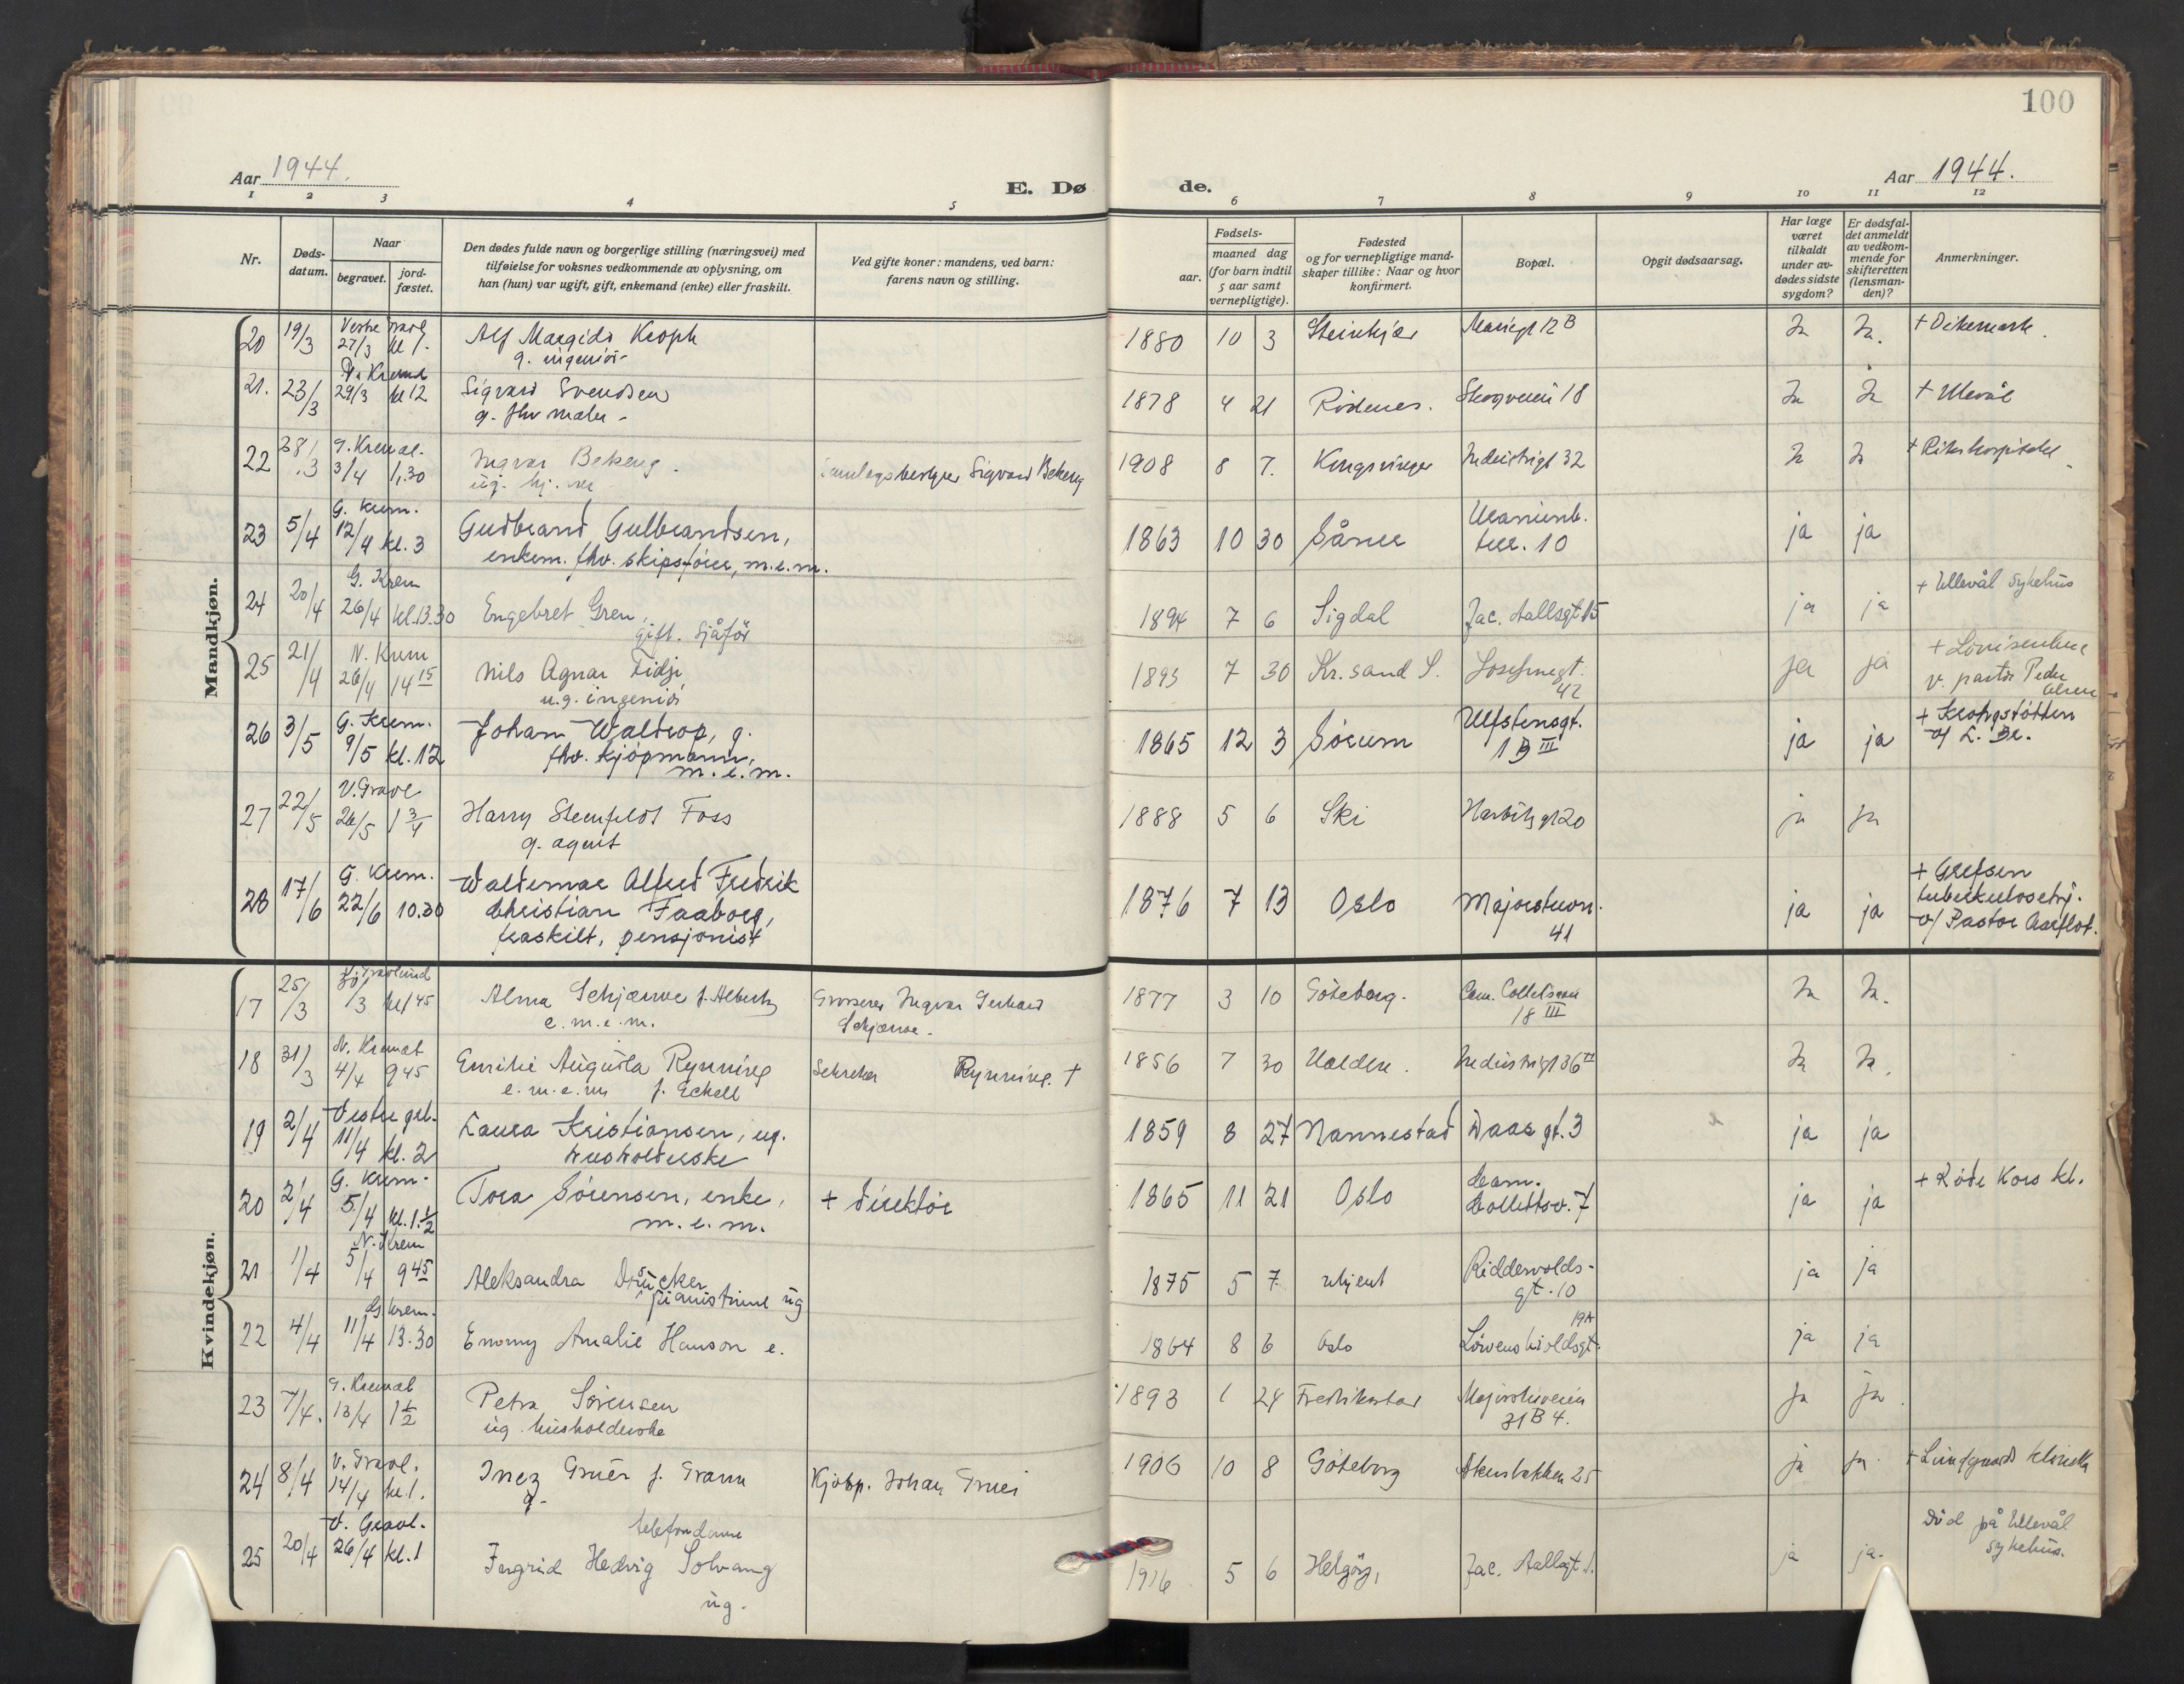 100
Aar 1944.
Aar 1944.
E. Dø
de.
1 2 3 4 5 6 7 8 9 10 11 12
Nr.
Døds-
datum.
Naar
begravet.
jord-
fæstet.
Den dødes fulde navn og borgerlige stilling (næringsvei) med
tilføielse for voksnes vedkommende av oplysning, om
han (hun) var ugift, gift, enkemand (enke) eller fraskilt.
Ved gifte koner: mandens, ved barn:
farens navn og stilling.
Fødsels-
aar. maaned dag
(for barn indtil
5 aar samt
vernepligtige).
Fødested
og for vernepligtige mand-
skaper tillike: Naar og hvor
konfirmert.
Bopæl.
Opgit dødsaarsag.
Har læge
været
tilkaldt
under av-
dødes sidste
sygdom?
Er dødsfal-
det anmeldt
av vedkom-
mende for
skifteretten
(lensman-
den)?
Anmerkninger.
Mandkjøn.
20 19/3 Vestre Gravl 27/3 kl 1. Alf Margido Kroph 1880 10 3 Steinkjær Mariegt 12 B Ja Ja. + Dikemark.
g. ingeniør
21. 23/3 V. Krema 29/3 kl 12 Sigvard Svendsen 1878 4 21 Rødenes. Skogveien 18 Ja Ja + Ullevål
g. fhv maler
22 28/3 G. Kremat. 3/4 1,30 Ingvar Bekeng. Sigvard Bekeng 1908 8 7. Kongsvinger Industrigt 32 Ja Ja + Rikshospitalet
ug.
23 5/4 G. Krem. 12/4 kl. 3 Gudbrand Gulbrandsen, 1863 10 30 Såner Uranienb. terr. 10 ja ja
enkem. fhv. skipsfører, m.e.m.
24 20/4 G. Krem 26/4 kl. 13.30 Engebret Gren, 1894 7 6 Sigdal Jac. Aallsgt 15 ja ja + Ullevål sykehus
gift. Sjåfør
25 21/4 N. Krem 26/4 14 15 Nils Agnar Fidje, 1893 7 30 Kr. sand S. Josefinegt. 42 ja ja + Lovisenberg
u.g. ingeniør
v. pastor Peder Olsen
26 3/5 G. Krem. 9/5 kl. 12 Johan Waldrop, g. 1865 12 3 Sørum Ulfstensgt. 1 B III ja ja + Krohgstøtten
fhv. kjøpmann, m.e.m.
v/ L. Br.
27 22/5 V. Gravl 26/5 1 3/4 Harry Steenfeldt Foss 1888 5 6 Ski Harbitzgt 20 ja ja
g. agent
28 17/6 G. Krem. 22/6 10.30 Waldemar Alfred Fredrik 1876 7 13 Oslo Majorstuvn. 41 ja ja + Grefsen
Christian Faaborg,
fraskilt, pensjonist
tuberkulosehj.
v/ Pastor Aarflot.
Kvindekjøn.
17 25/3 /3 kl 1 45 Alma Schjærve f. Alberts Grosserer Ingvar Gerhard 1877 3 10 Göteborg. Cam. Collettsvei 18 III Ja Ja.
e.m.e.m.
Schjærve.
18 31/3 N. Kremat 4/4 9 45 Emilie Augusta Rynning Sekretær Rynning. † 1856 7 30 Halden. Industrigt 36 II Ja Ja.
e.m.e.m f. Eckell
19 2/4 Vestre grl. 11/4 kl. 2 Laura Kristiansen, ug. 1859 8 27 Nannestad Daas gt. 3 ja ja
husholderske
20 2/4 G. Krem. 5/4 kl. 1 1/2 Tora Sørensen, enke, + direktør 1865 11 21 Oslo Cam. Collettsv. 7 ja ja + Røde Kors kl.
m.e.m.
21 1/4 N. Krem 5/4 9 45 Aleksandra Drücker 1875 5 7. ukjent Riddervolds- gt. 10 ja ja
pianistinne ug
22 4/4 G krem. 11/4 13.30 Emmy Amalie Hanson e. 1864 8 6 Oslo Løvenskioldsgt. 19A ja ja
23 7/4. G. Kremat 13/4 1 1/2 Petra Sørensen 1893 1 24 Fredrikstad Majorstuveien 31 B 4. ja ja
ug. husholderske
24 8/4 V. Gravl. 14/4 kl. 1. Inez Gruér f. Grann Kjøbp. Johan Gruer 1906 10 8 Göteborg Akersbakken 25 ja ja. + Lundgaards klinikk
g.
25 20/4 V. Gravl. 26/4 kl. 1 Ingrid Hedvig Solvang 1916 5 6 Helgøy, Jac. Aallsgt 1. ja ja. Død på Ullevål sykehus.
telefondame
ug.